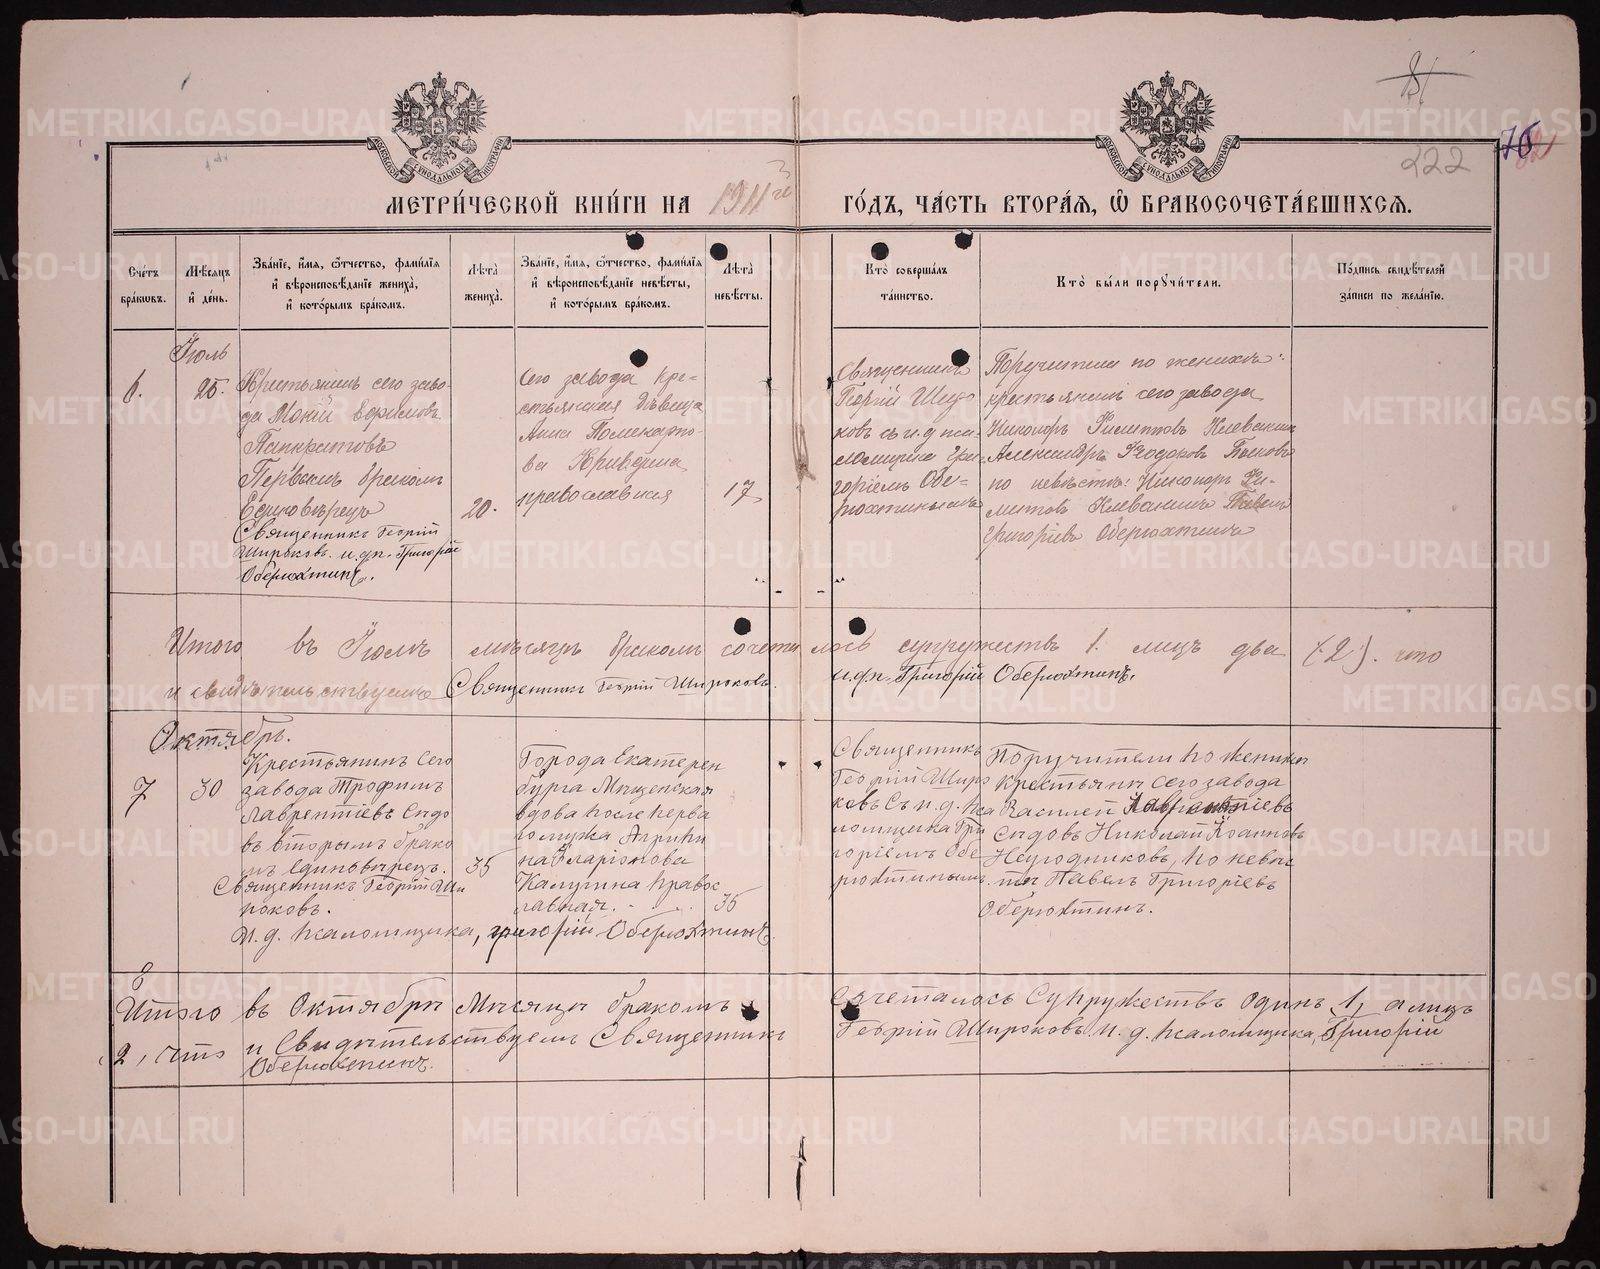 МЕТРИ́ЧЕСКОЙ КНИ́ГИ НА 1911 го ГО́ДЪ, ЧА́СТЬ ВТОРА́Я, Ѡ БРАКОСОЧЕТА́ВШИХСѦ.
222
Сче́тъ бра́кѡвъ.
Мѣ́сяцъ и҆ де́нь.
Зва́нїе, и҆́мя, ѻ҆́тчество, фами́лїя и҆ вѣроисповѣ́данїе жениха̀, и҆ кото́рымъ бра́комъ.
Лѣ́та жениха̀.
Зва́нїе, и҆́мя, ѻ҆́тчество, фами́лїя и҆ вѣроисповѣ́данїе невѣ́сты, и҆ кото́рымъ бра́комъ.
Лѣ́та невѣ́сты.
Кто̀ соверша́лъ та́инство.
Кто̀ бы́ли порꙋчи́тели.
По́дпись свидѣ́телей за́писи по жела́нїю.
Іюль
6. 25.
Крестьянинъ сего заво-
да Ефимовъ
Панкратовъ
Первымъ бракомъ
Единовѣрецъ
20.
Священникъ Георгій
Широковъ. и.д.п. Григорій
Оберюхтинъ.
Сего завода кре-
стьянская дѣвица
Анна Поликарпо-
ва
православная
17
Священникъ
Георгій Широ
ковъ съ и.д пса-
ломщика Гри-
горіемъ Обе-
рюхтинымъ
Поручители по женихѣ:
крестьяне сего завода
Никаноръ Филитовъ Клевакинъ
Александръ
по невѣстѣ: Никаноръ Фи-
литовъ Клевакинъ Павелъ
Григорьевъ Оберюхтинъ
Итого въ Іюлѣ мѣсяцѣ бракомъ сочеталось супружествъ 1. лицъ два (2). что
и свидѣтельствуемъ Священникъ Георгій Широковъ. и.д.п. Григорій Оберюхтинъ.
Октябрь.
7 30
Крестьянинъ сего
завода Трофимъ
Лаврентіевъ Сѣдо
въ вторымъ брако
мъ единовѣрецъ. 35
Священникъ Георгій Ши
роковъ.
И. д. псаломщика, григорій Оберюхтинъ.
Города Екатерен
бурга Мѣщенская
вдова после перва
го мужа Агрипи
на Иларіонова
Калугина правос
лавная. 35
Священникъ
Георгій Широ
ковъ Съ и. д. пса
ломщика Гри
горіемъ Обе
рюхтинымъ.
Поручители по женихѣ
крестьяни сего завода
Василей Лаврентіевъ
Сѣдовъ Николай Іоанновъ
Негодниковъ, по невѣс
тѣ Павелъ Григоріевъ
Оберюхтинъ.
Итого въ Октябри Мѣсяцѣ бракомъ Сочеталось Супружествъ одинъ 1, а лицъ
2, что и Свидѣтельствуемъ Священникъ Георгій Широковъ. И. д. псаломщика, Григорій
Оберюхтинъ.
METRIKI.GASO-URAL.RU